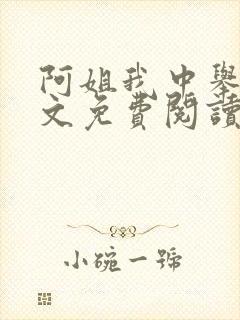 阿姐我中舉
文免費閱讀
小碗一號